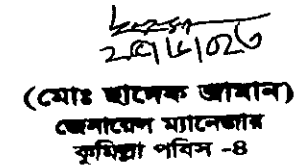 (মোঃ ছাদেক জামান)
জেনারেল ম্যানেজার
কুমিল্লা পবিস -৪